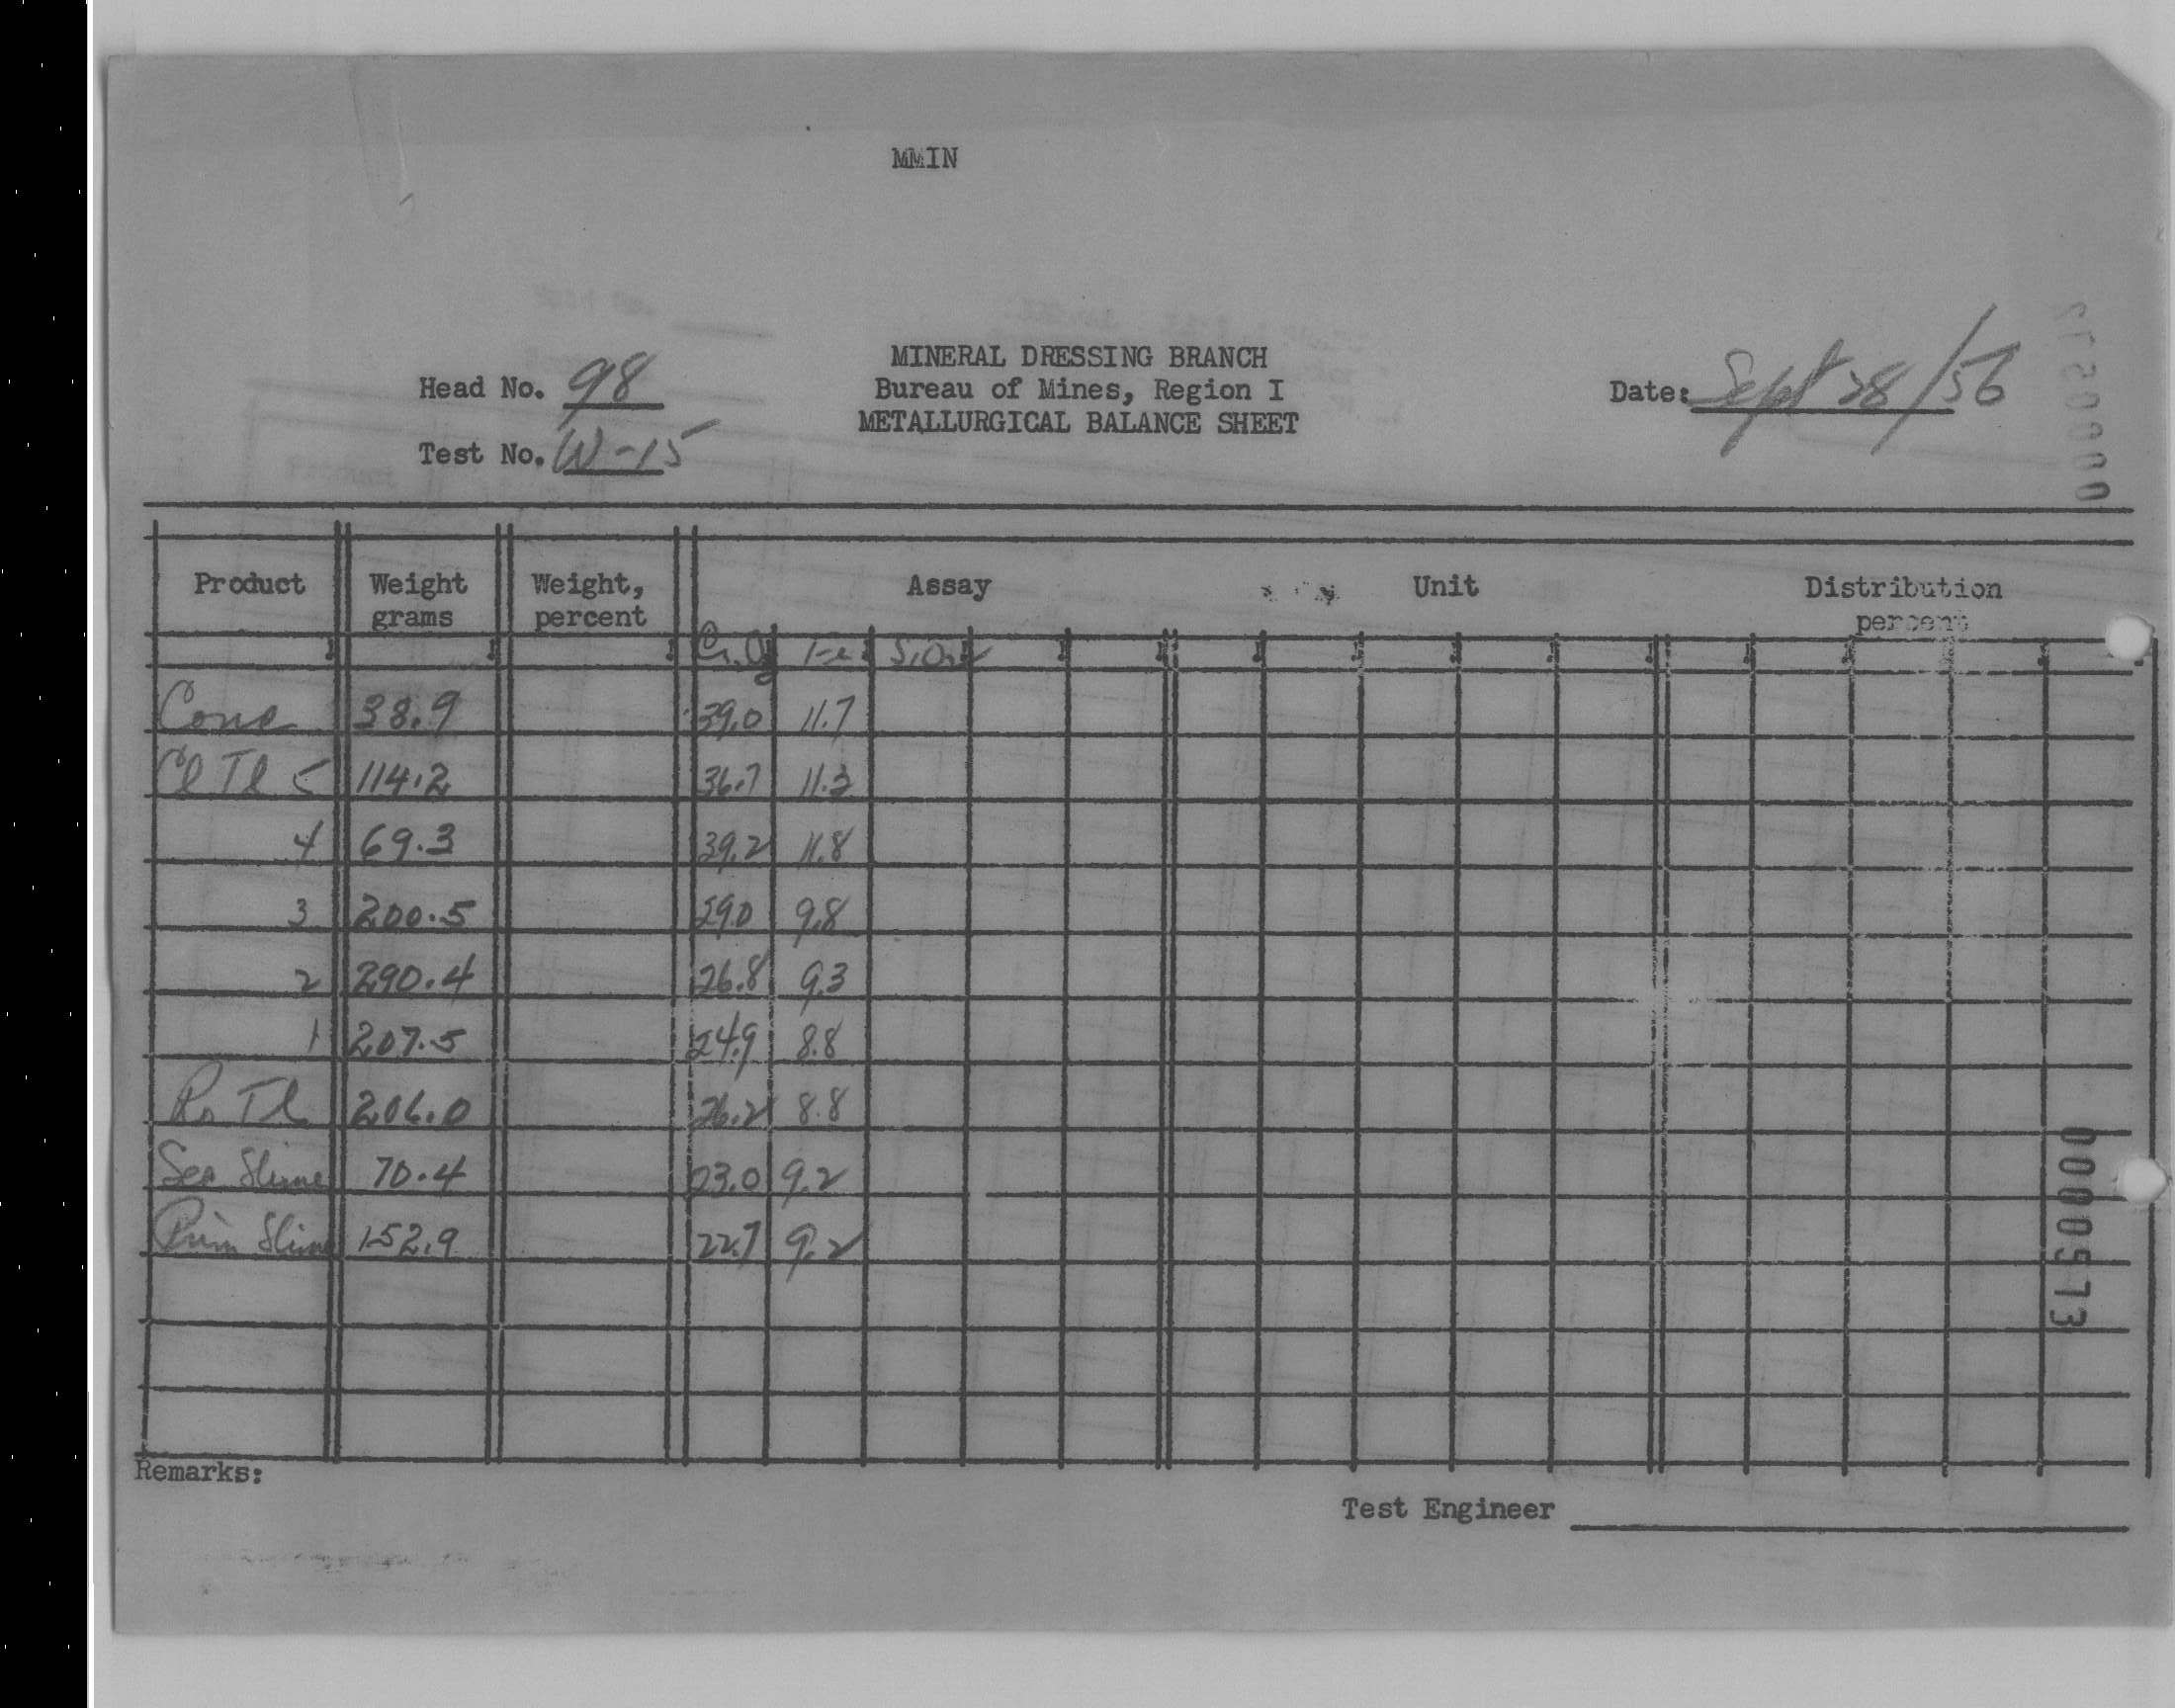 MMIN
MINERAL DRESSING BRANCH
Head No. 98
Bureau of Mines, Region I
Date: Sept 28/56
METALLURGICAL BALANCE SHEET
Test No. W-15
Product Weight grams Weight, percent Assay Unit Distribution percent
Cr2O3 Fe SiO2
Conc 38.9 39.0 11.7
Cl Tl 5 114.2 36.7 11.3
4 69.3 39.2 11.8
3 200.5 29.0 9.8
2 290.4 26.8 9.3
1 207.5 24.9 8.8
Ro Tl 206.0 26.2 8.8
Sec Slime 70.4 23.0 9.2
Prim Slime 152.9 22.7 9.2
Remarks:
Test Engineer
0000573